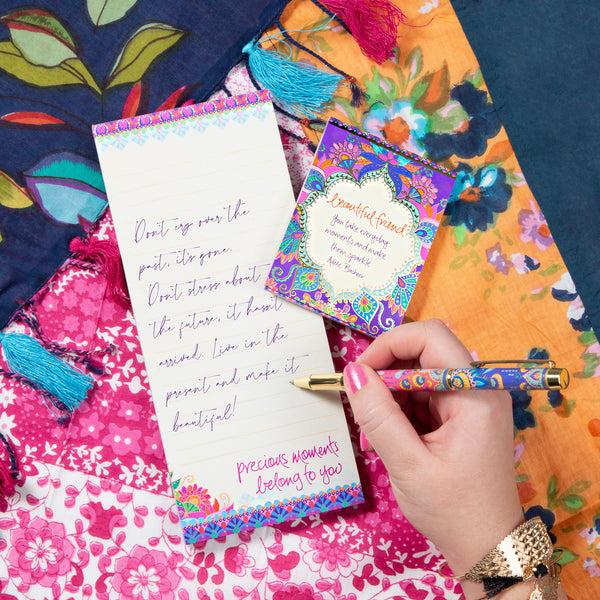 Don't cry over the
past, it's gone.
Don't stress about
the future, it hasn't
arrived. Live in the
present and make it
beautiful!
precious moments
belong to you
beautiful friend
you take everyday
moments and make
them sparkle